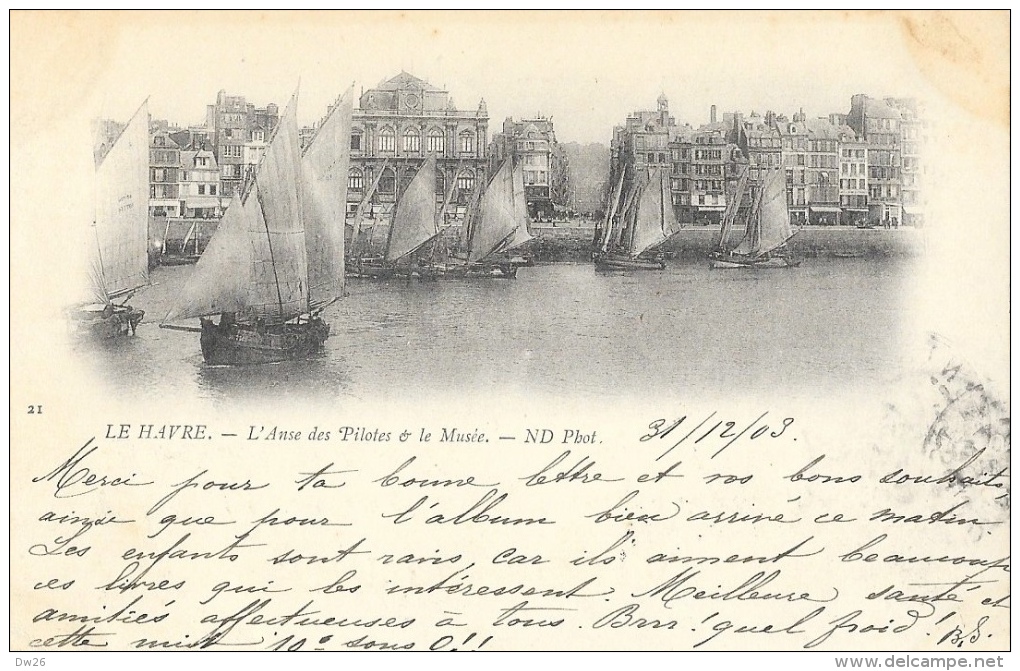 21
LE HAVRE. — L'Anse des Pilotes & le Musée. — ND Phot.
31/12/03.
Merci pour ta bonne lettre et vos bons souhaits,
ainsie que pour l'album bien arrivé ce matin
Les enfants sont ravis, car ils aiment beaucoup
ces livres qui les intéressent. Meilleure santé et
amitiés affectueuses à tous. Brrr! quel froid!
cette nuit 10° sous 0!! B.S.
Dw26
www.delcampe.net